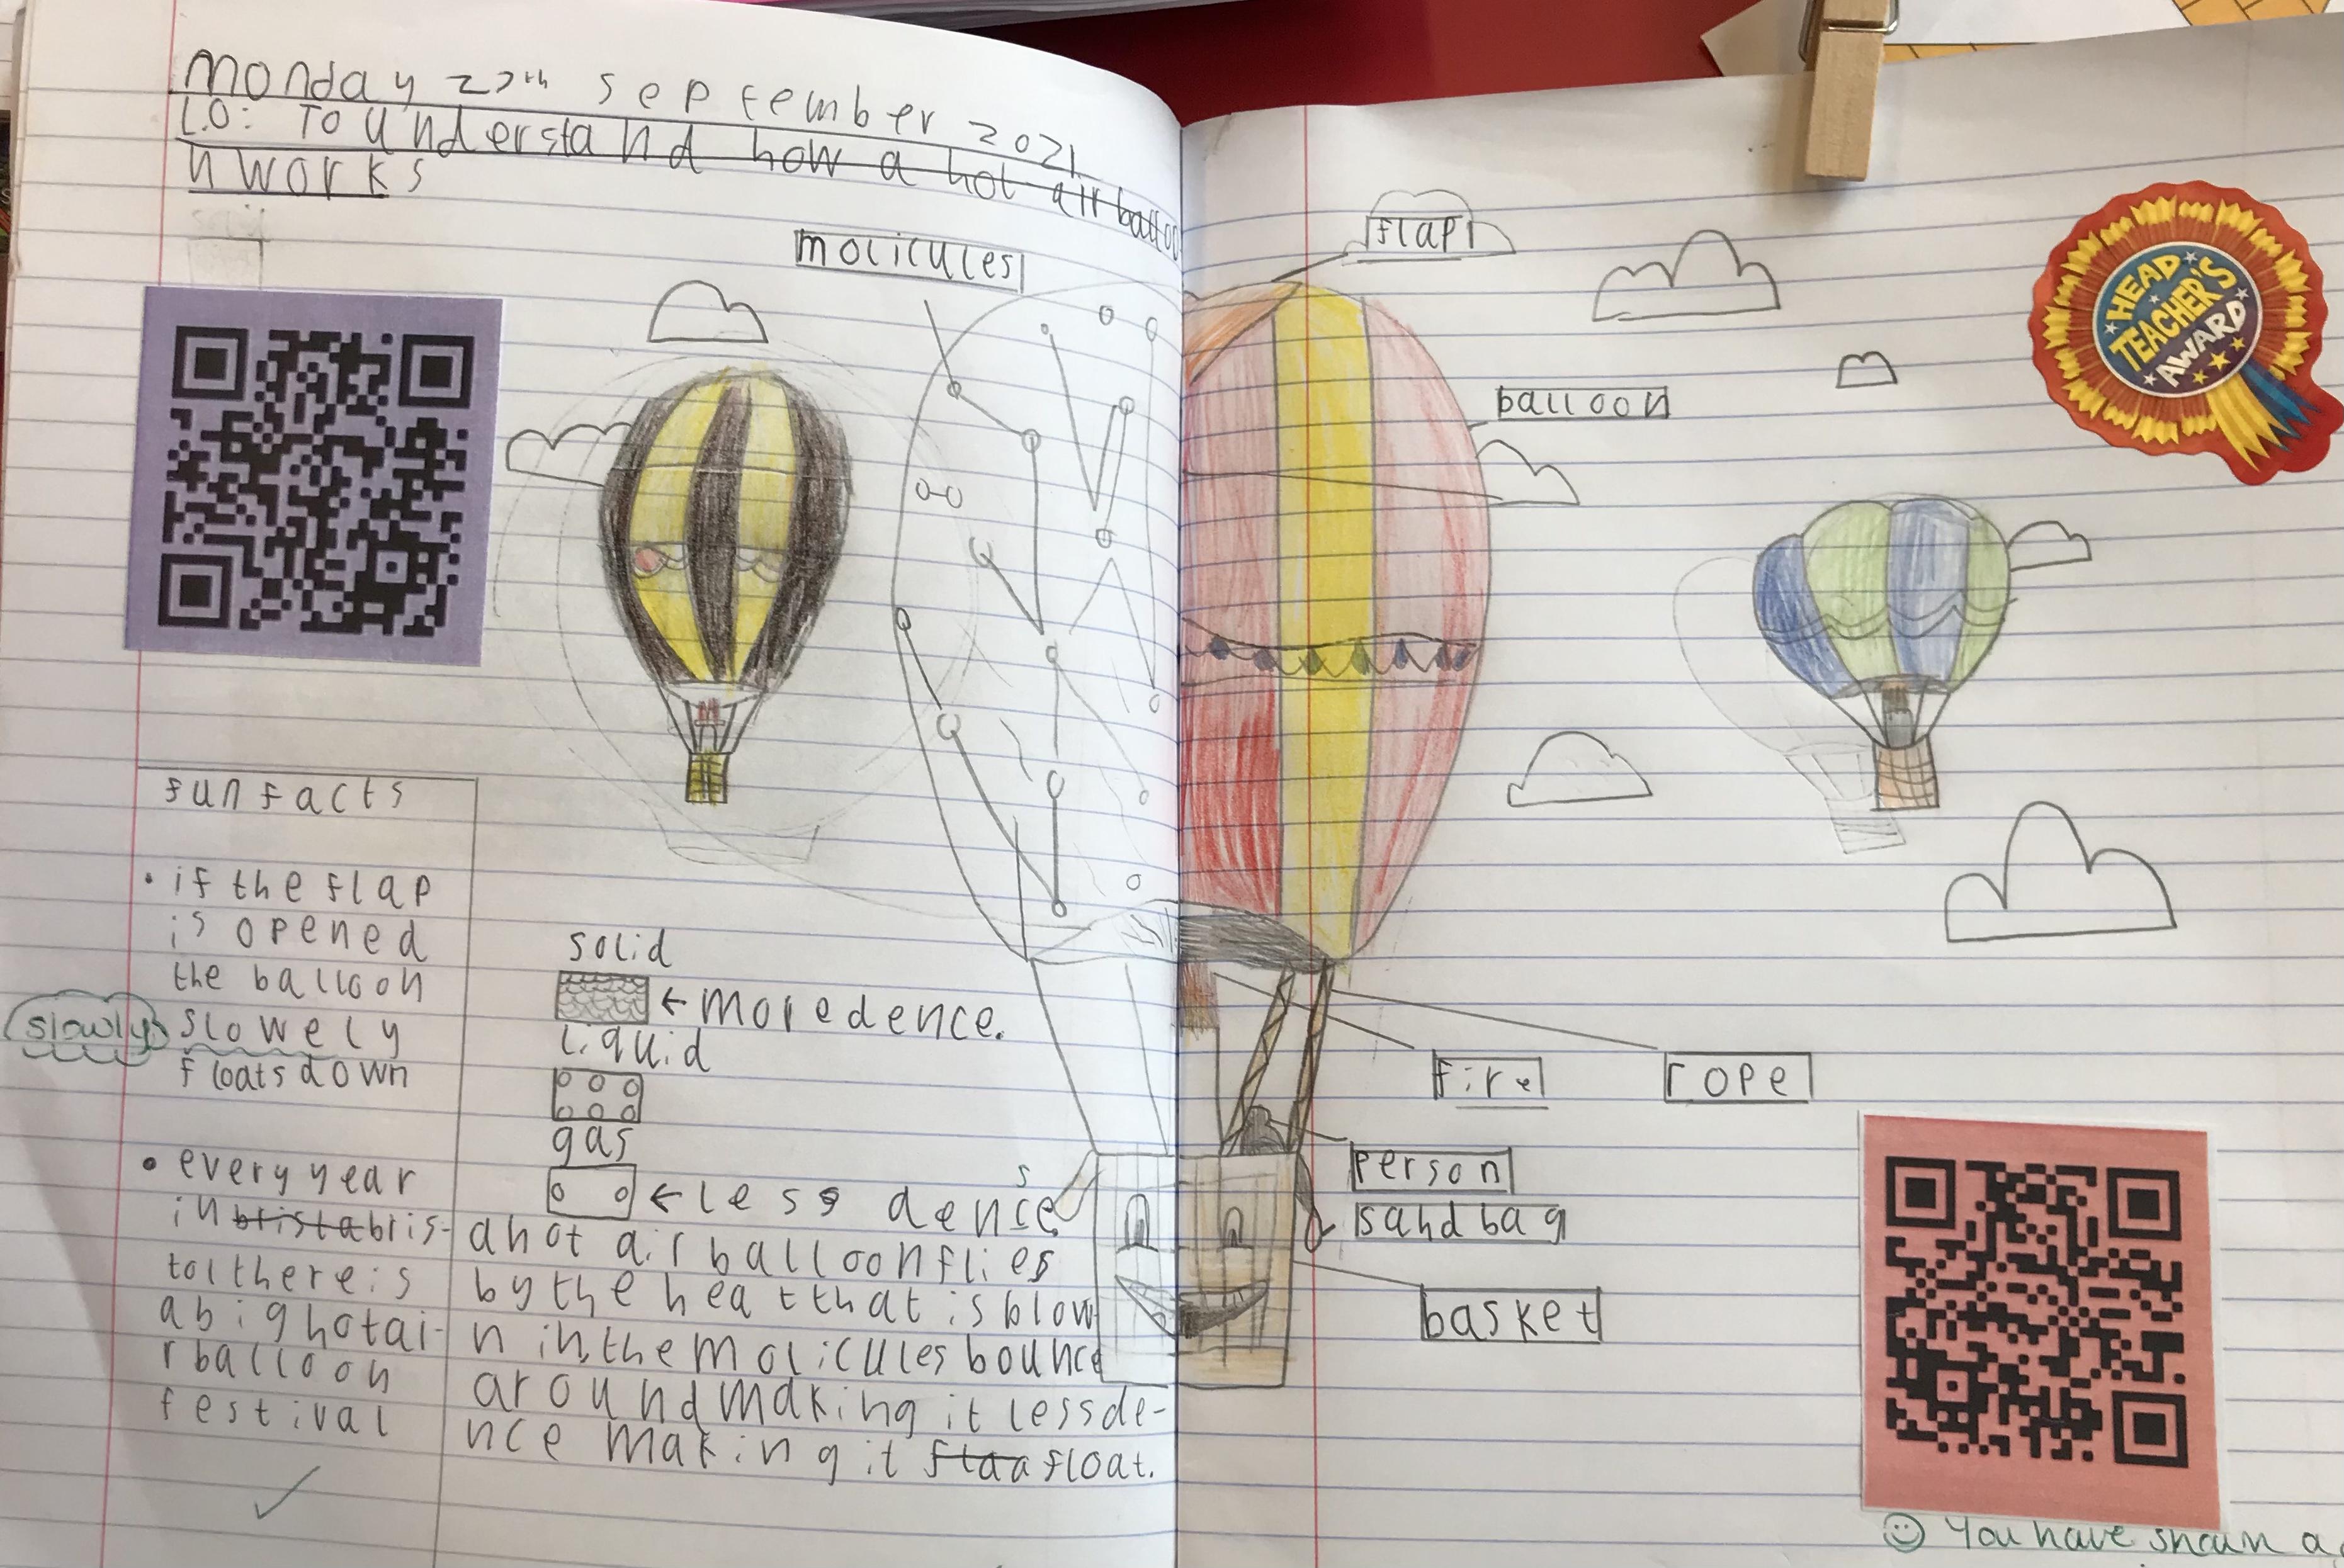 Monday 27th September 2021
L.O: To understand how a hot air balloo
n works
molicules
flap
balloon
HEAD
TEACHER'S
AWARD
fun facts
• if the flap
is opened
the balloon
slowly slowely
floats down
• every year
in brista bris-
tol there is
a big hot ai-
r balloon
festival
solid
← more dence.
liquid
gas
← less dence
s
a hot air balloon flies
by the heat that is blow
n in, the molicules bounce
around making it less de-
nce making it flaa float.
fire
rope
person
sandbag
basket
You have shown a